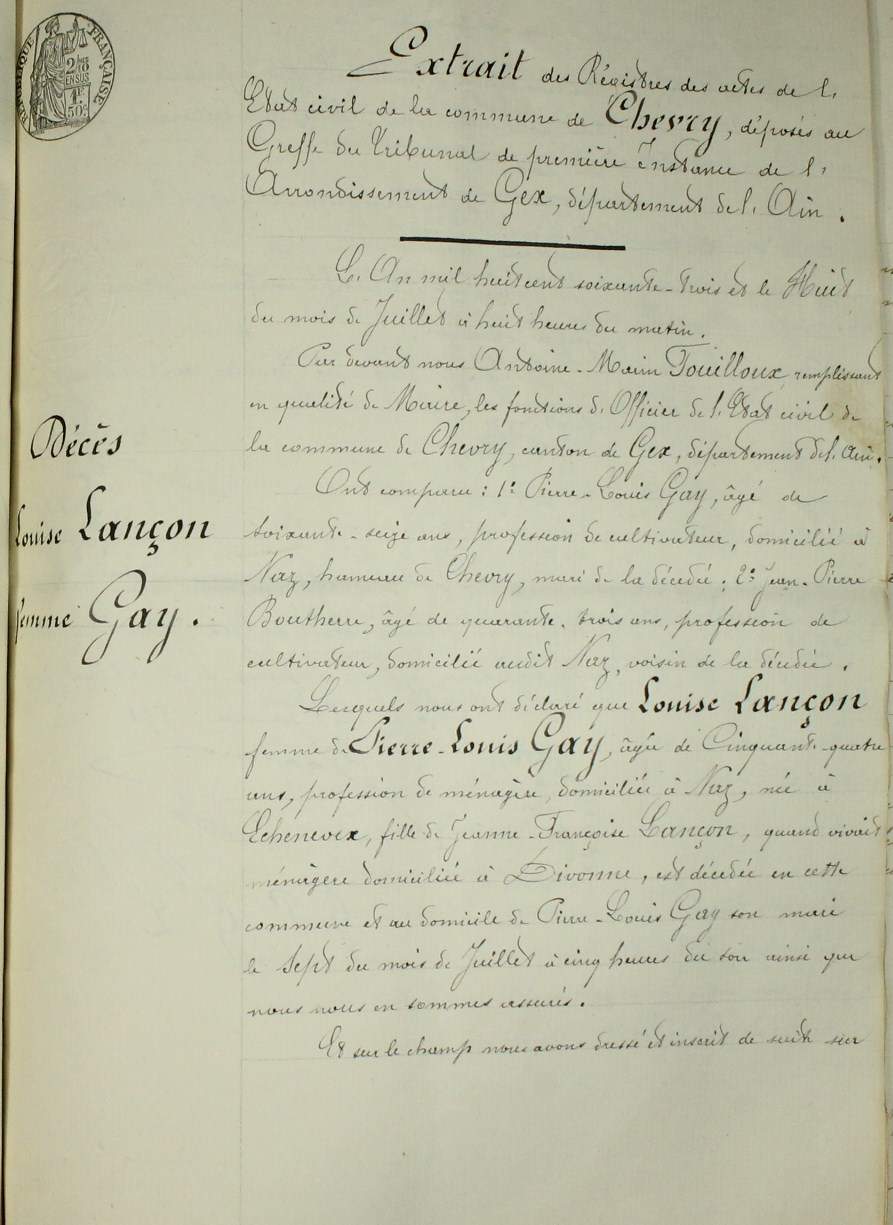 RÉPUBLIQUE FRANÇAISE
2/10
EN SUS
1F
50c
Extrait des Régistres des actes de l'
Etat civil de la commune de Chevry, déposés au
Greffe du Tribunal de première Instance de l'
Arrondissement de Gex, département de l'Ain.
L'An mil huit cent soixante-trois et le Huit
du mois de Juillet à huit heures du matin.
Par devant nous Antoine-Marin Fouilloux, remplissant
en qualité de Maire, les fonctions d'Officier de l'Etat civil de
la commune de Chevry, canton de Gex, département de l'Ain.
Décès
Louise Lançon
femme Gay.
Ont comparu: 1° Pierre-Louis Gay, âgé de
soixante-seize ans, profession de cultivateur, domicilié à
Naz, hameau de Chevry, mari de la décédée; 2° Jean-Pierre
âgé de quarante-trois ans, profession de
cultivateur, domicilié audit Naz, voisin de la décédée.
Lesquels nous ont déclaré que Louise Lançon
femme de Pierre-Louis Gay, âgée de Cinquante-quatre
ans, profession de ménagère, domiciliée à Naz, née à
Echenevex, fille de Jeanne-Françoise Lançon, quand vivait
ménagère domiciliée à Divonne, est décédée en cette
commune et au domicile de Pierre-Louis Gay son mari
le Sept du mois de Juillet à cinq heures du soir ainsi que
nous nous en sommes assurés.
Et sur le champ nous avons dressé et inscrit de suite sur